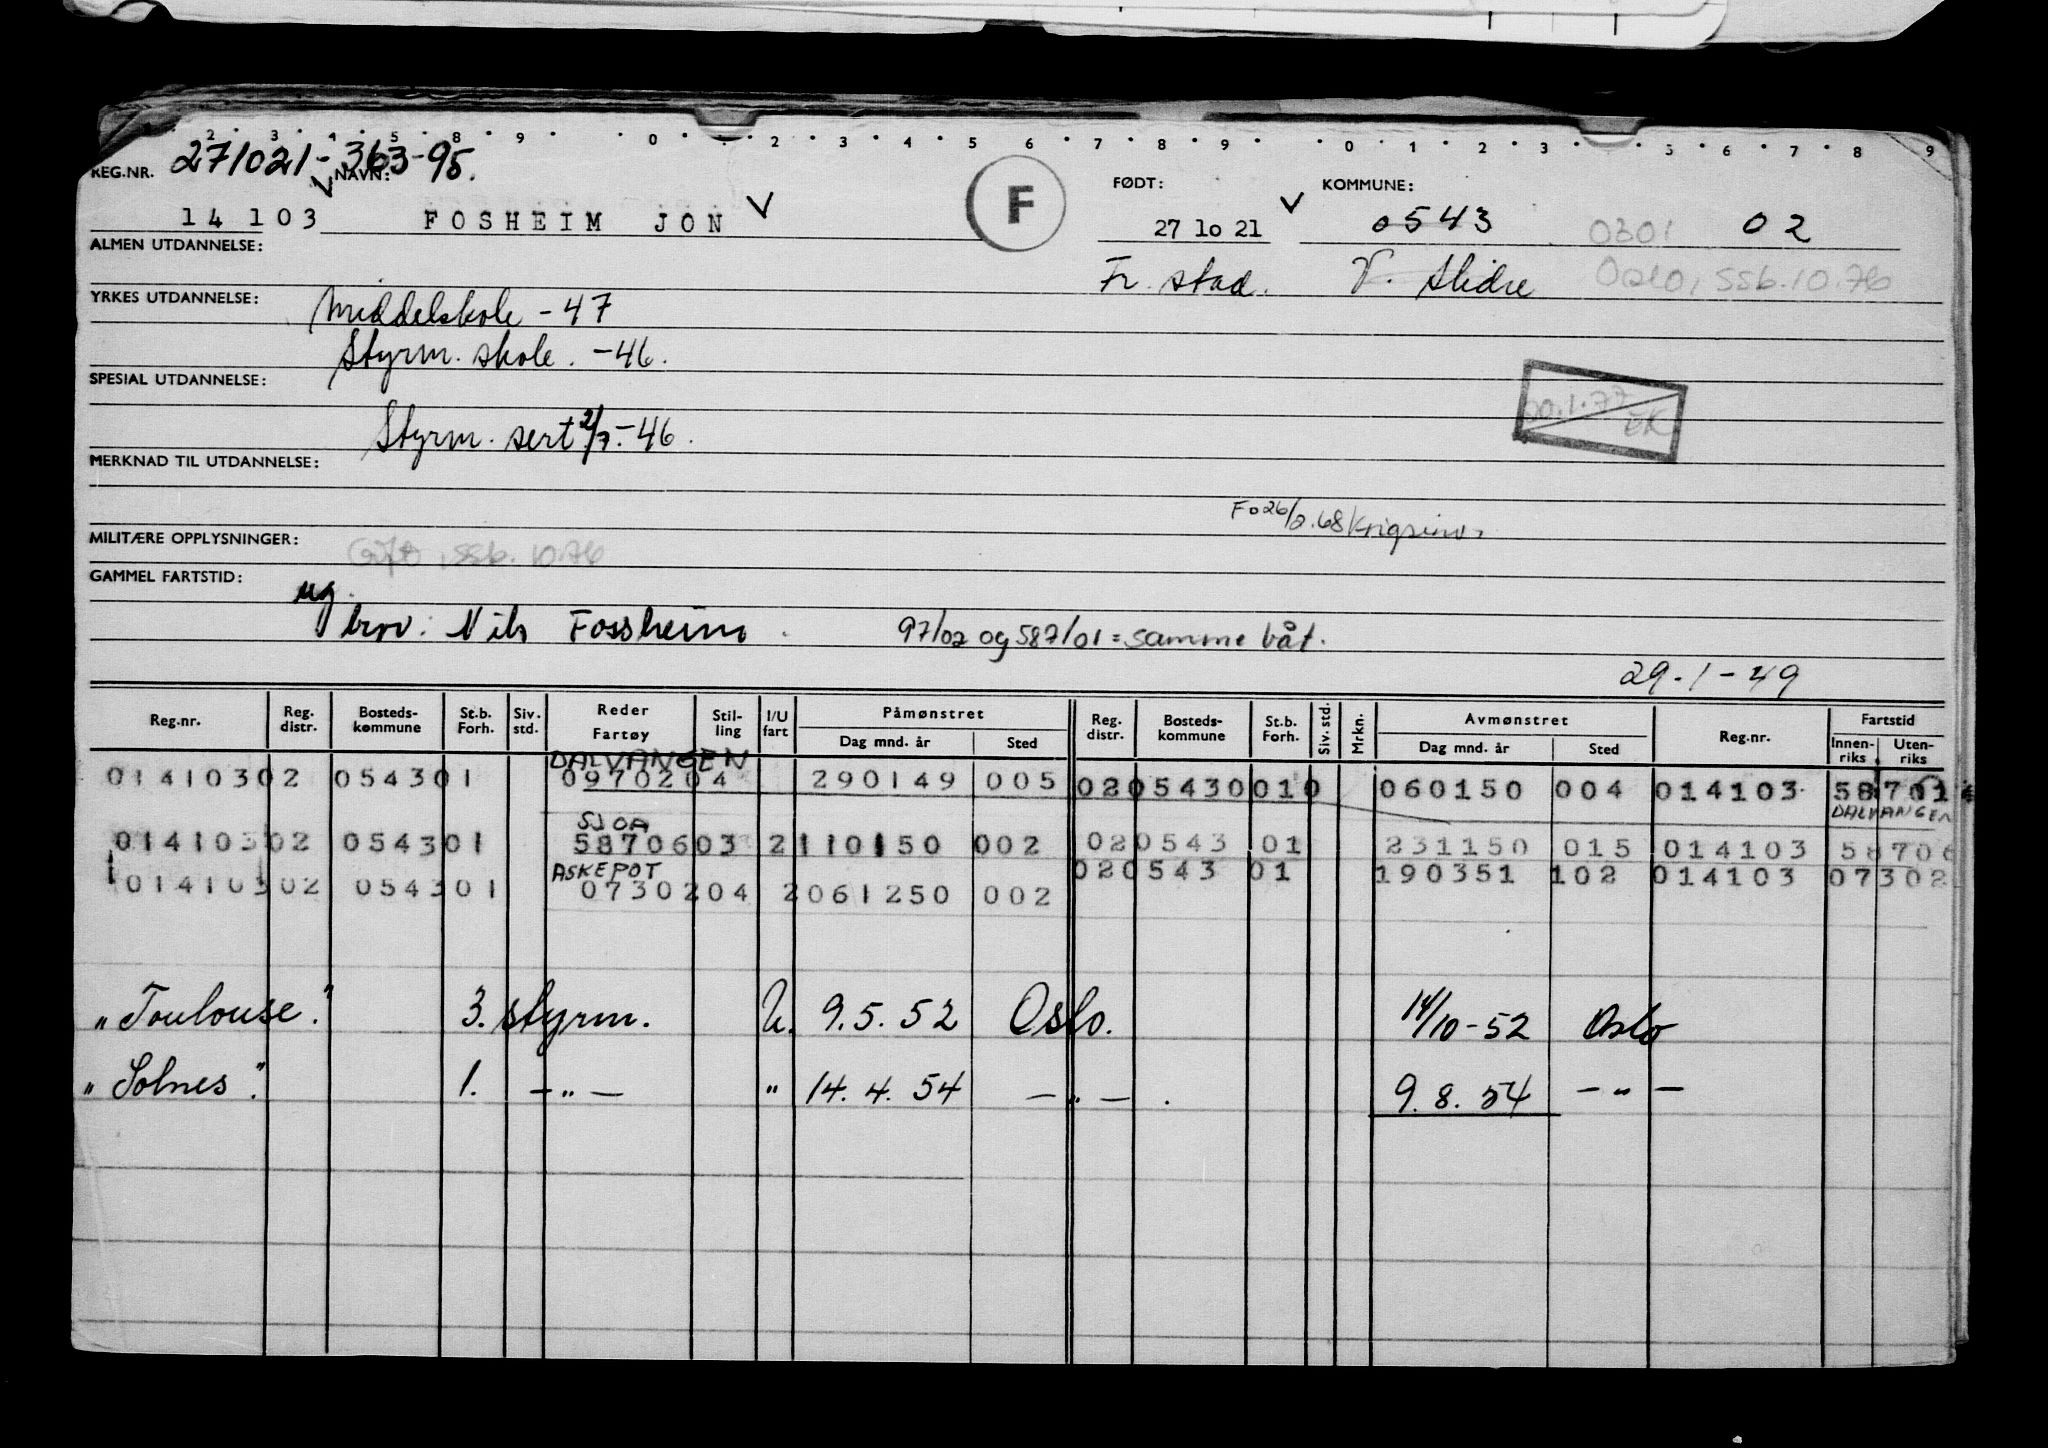 2 3 4 5 8 9 0 1 2 3 4 5 6 7 8 9 0 1 2 3 5 6 7 8 9
271021-363-95.
REG.NR. NAVN: FØDT: KOMMUNE:
14 103 FOSHEIM JON F 27 10 21 0543 0301 02
ALMEN UTDANNELSE: Fr. stad. V. Slidre Oslo, SSB.10.76
YRKES UTDANNELSE: Middelskole -47
Styrm. skole. -46.
SPESIAL UTDANNELSE:
Styrm. sert 2/7-46.
MERKNAD TIL UTDANNELSE:
Fo 26/2.68
MILITÆRE OPPLYSNINGER: Gift, SSB. 10.76
GAMMEL FARTSTID:
ug.
brov: Nils Fossheim. 97/02 og 587/01 = samme båt.
29.1-49
Reg.nr. Reg. distr. Bosteds-kommune St.b. Forh. Siv. std. Reder Fartøy Stil-ling I/U fart Påmønstret Dag mnd. år Sted Reg. distr. Bosteds-kommune St.b. Forh. Siv. std. Mrkn. Avmønstret Dag mnd. år Sted Reg.nr. Fartstid Innen-riks Uten-riks
DALVANGEN
01410302 054301 0970204 290149 005 0205430010 060150 004 014103 58701
DALVANGEN
SJOA
01410302 054301 5870603 2110150 002 020543 01 231150 015 014103 58706
ASKEPOT
01410302 054301 0730204 2061250 002 020543 01 190351 102 014103 07302
"Toulouse". 3. styrm. U. 9.5.52 Oslo. 14/10-52 Oslo
"Solnes". 1. -"- " 14.4.54 -"-. 9.8.54 -"-